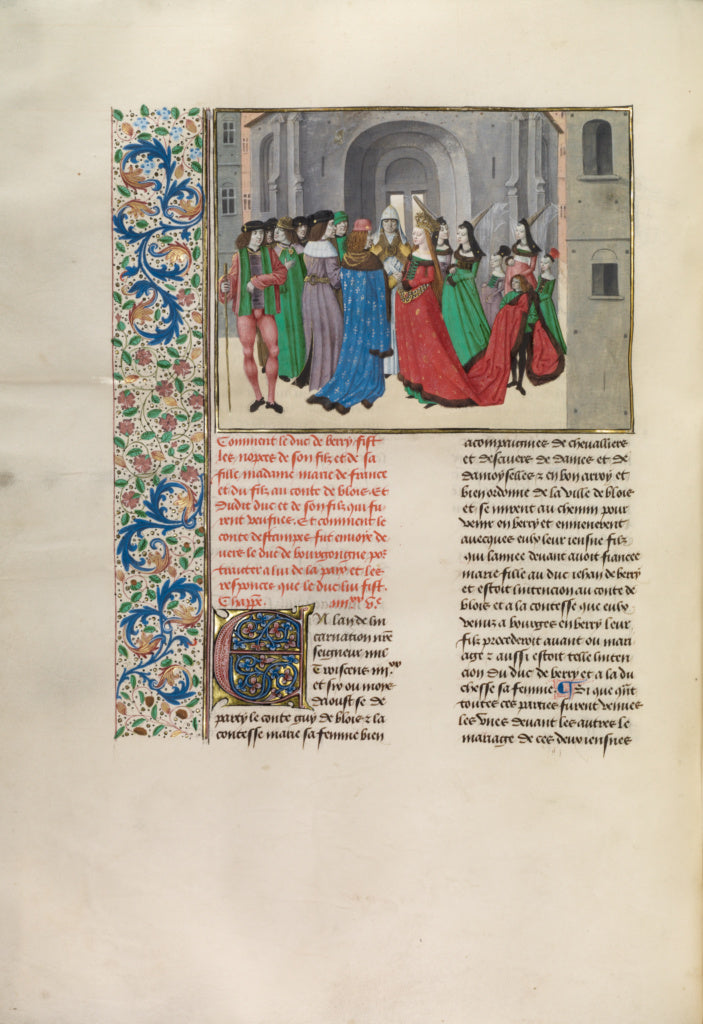 Comment le duc de berry fist
les nopces de son filz et de sa
fille madame marie de france
et du filz au conte de blois. Et
dudit duc et de son filz qui fu
rent veufues. Et comment le
conte destampes fut enuoie de
uers le duc de bourgoingne po
traitter a lui de la paix et les
responces que le duc lui fist.
Chappe. iiii xx
En lan de lin
carnation nre
seigneur mil
Troiscens iiii. xx
et six ou mois
daoust se de
party le conte guy de blois et la
contesse marie sa femme bien
acompaignies de chevalliers
et descuiers de dames et de
damoyselles et en bon arroy et
bien ordonne de la ville de blois
et se mirent au chemin pour
venir en berry et enmenerent
auecques eulx leur ieusne filz
qui lannee deuant auoit fiancee
marie fille au duc iehan de berry
et estoit lintencion au conte de
blois et a la contesse que eulx
venuz a bourges en berry leur
filz procederoit auant ou mari
age et aussi estoit telle linten
cion du duc de berry et a la du
chesse sa femme. Si que qnt
toutes ces parties furent venues
les vnes deuant les autres le
mariage de ces deux ieusnes